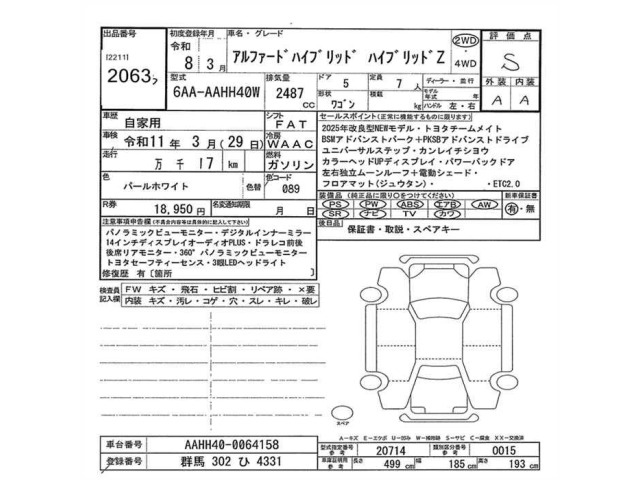 出品番号
I22111
2063フ
初度登録年月
令和
8 3月
車名・グレード
アルファードハイブリッド ハイブリッドZ
2WD
・
4WD
評価点
S
外装 内装
A A
型式
6AA-AAHH40W
排気量
2487
cc
ドア
5
形状
ワゴン
定員
7 人
積載
kg
ディーラー・並行
モデル年式 年
ハンドル 左・右
車歴
自家用
シフト
FAT
車検
令和11年 3月(29日)
冷房
WAAC
走行
万 千 17 km
燃料
ガソリン
色
パールホワイト
色替
色コード
089
R券
18,950 円
名変期限
月 日
セールスポイント(正常に機能するものに限ります)
2025年改良型NEWモデル・トヨタチームメイト
BSMアドバンストパーク+PKSBアドバンストドライブ
ユニバーサルステップ・カンレイチショウ
カラーヘッドUPディスプレイ・パワーバックドア
左右独立ムーンルーフ+電動シェード・
フロアマット(ジュウタン)・ ・ETC2.0
装備品(純正品に限り○をつけてください)
PS PW ABS エアB AW
SR ナビ TV カワ
新車保証書
有・無
後日品
保証書・取説・スペアキー
注意事項申告欄(不具合内容等は具体的に記入して下さい)
パノラミックビューモニター・デジタルインナーミラー
14インチディスプレイオーディオPLUS・ドラレコ前後
後席リアモニター・360°パノラミックビューモニター
トヨタセーフティーセンス・3眼LEDヘッドライト
修復歴 有[箇所 ]
検査員記入欄
FW キズ・飛石・ヒビ割・リペア跡・×要
内装 キズ・汚レ・コゲ・穴・スレ・キレ・破レ
スペア
A=キズ E=エクボ U=凹み W=補修跡 S=サビ C=腐食 XX=交換済
車台番号
AAHH40-0064158
登録番号
群馬 302 ひ 4331
型式指定番号
参考
20714
類別区分番号
参考
0015
車庫証明用
参考
長さ
499 cm
幅
185 cm
高さ
193 cm